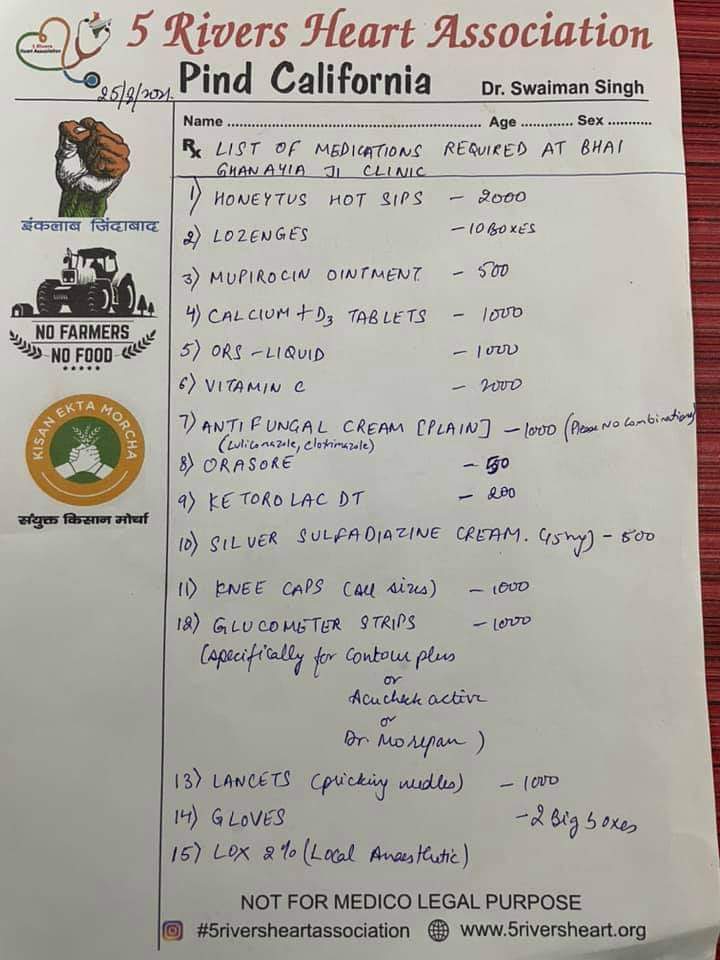 5 Rivers Heart Association
5 Rivers
Heart Association
Pind California
Dr. Swaiman Singh
25/8/2021.
Name ........ Age ........ Sex ........
Rx LIST OF MEDICATIONS REQUIRED AT BHAI
GHANAYIA JI CLINIC
1) HONEYTUS HOT SIPS - 2000
2) LOZENGES - 10 BOXES
3) MUPIROCIN OINTMENT - 500
4) CALCIUM + D3 TABLETS - 1000
5) ORS - LIQUID - 1000
6) VITAMIN C - 2000
7) ANTIFUNGAL CREAM [PLAIN] - 1000 (Please No Combination)
(Luliconazole, Clotrimazole)
8) ORASORE - 50
9) KETOROLAC DT - 200
10) SILVER SULFADIAZINE CREAM. - 500
11) KNEE CAPS (All sizes) - 1000
12) GLUCOMETER STRIPS - 1000
(specifically for Contour plus
or
Acucheck active
or
Dr Morepan)
13) LANCETS (pricking needles) - 1000
14) GLOVES - 2 Big boxes
15) LOX 2% (Local Anaesthetic)
इंकलाब जिंदाबाद
NO FARMERS
NO FOOD
KISAN EKTA MORCHA
संयुक्त किसान मोर्चा
NOT FOR MEDICO LEGAL PURPOSE
#5riversheartassociation www.5riversheart.org